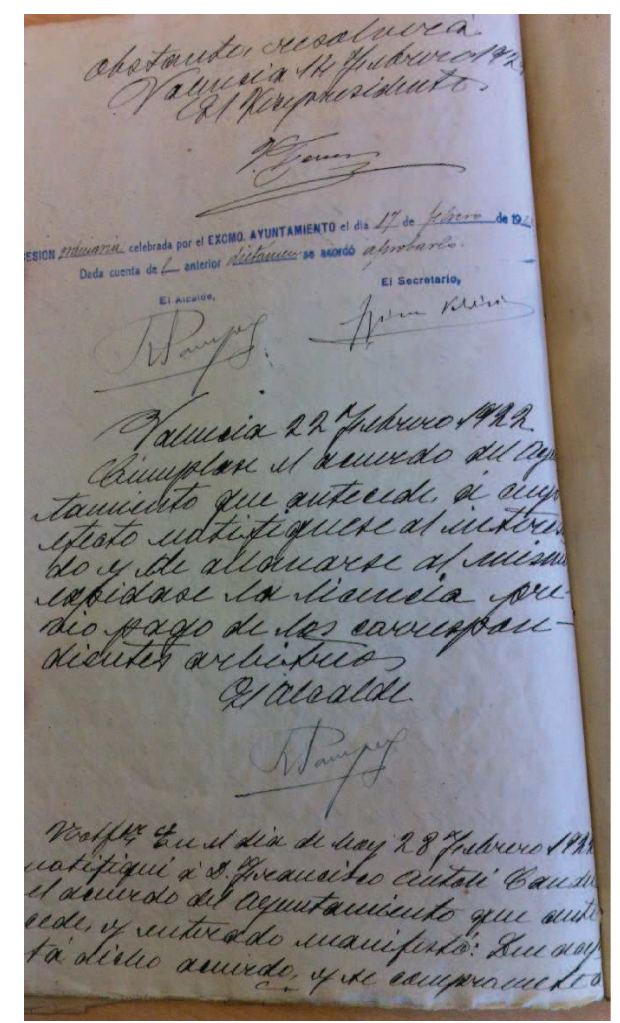 obstante, resolverá
Valencia 14 Febrero 192
El Vicepresidente
SESION ordinaria celebrada por el EXCMO. AYUNTAMIENTO el dia 17 de febrero de 192
Dada cuenta de l anterior dictamen se acordó aprobarlo.
El Alcalde,
El Secretario,
Valencia 22 Febrero 1922
Cúmplase el acuerdo del Ayun
tamiento que antecede, á cuyo
efecto notifíquese al interesa
do y de allanarse al mismo
expídase la licencia pré-
vio pago de los correspon-
dientes arbitrios
El Alcalde
En el día de hoy 28 Febrero 1922
notifiqué á D. Francisco Antolí Cande
el acuerdo del Ayuntamiento que ante
cede, y enterado manifestó: Que acep
ta dicho acuerdo, y se compromete